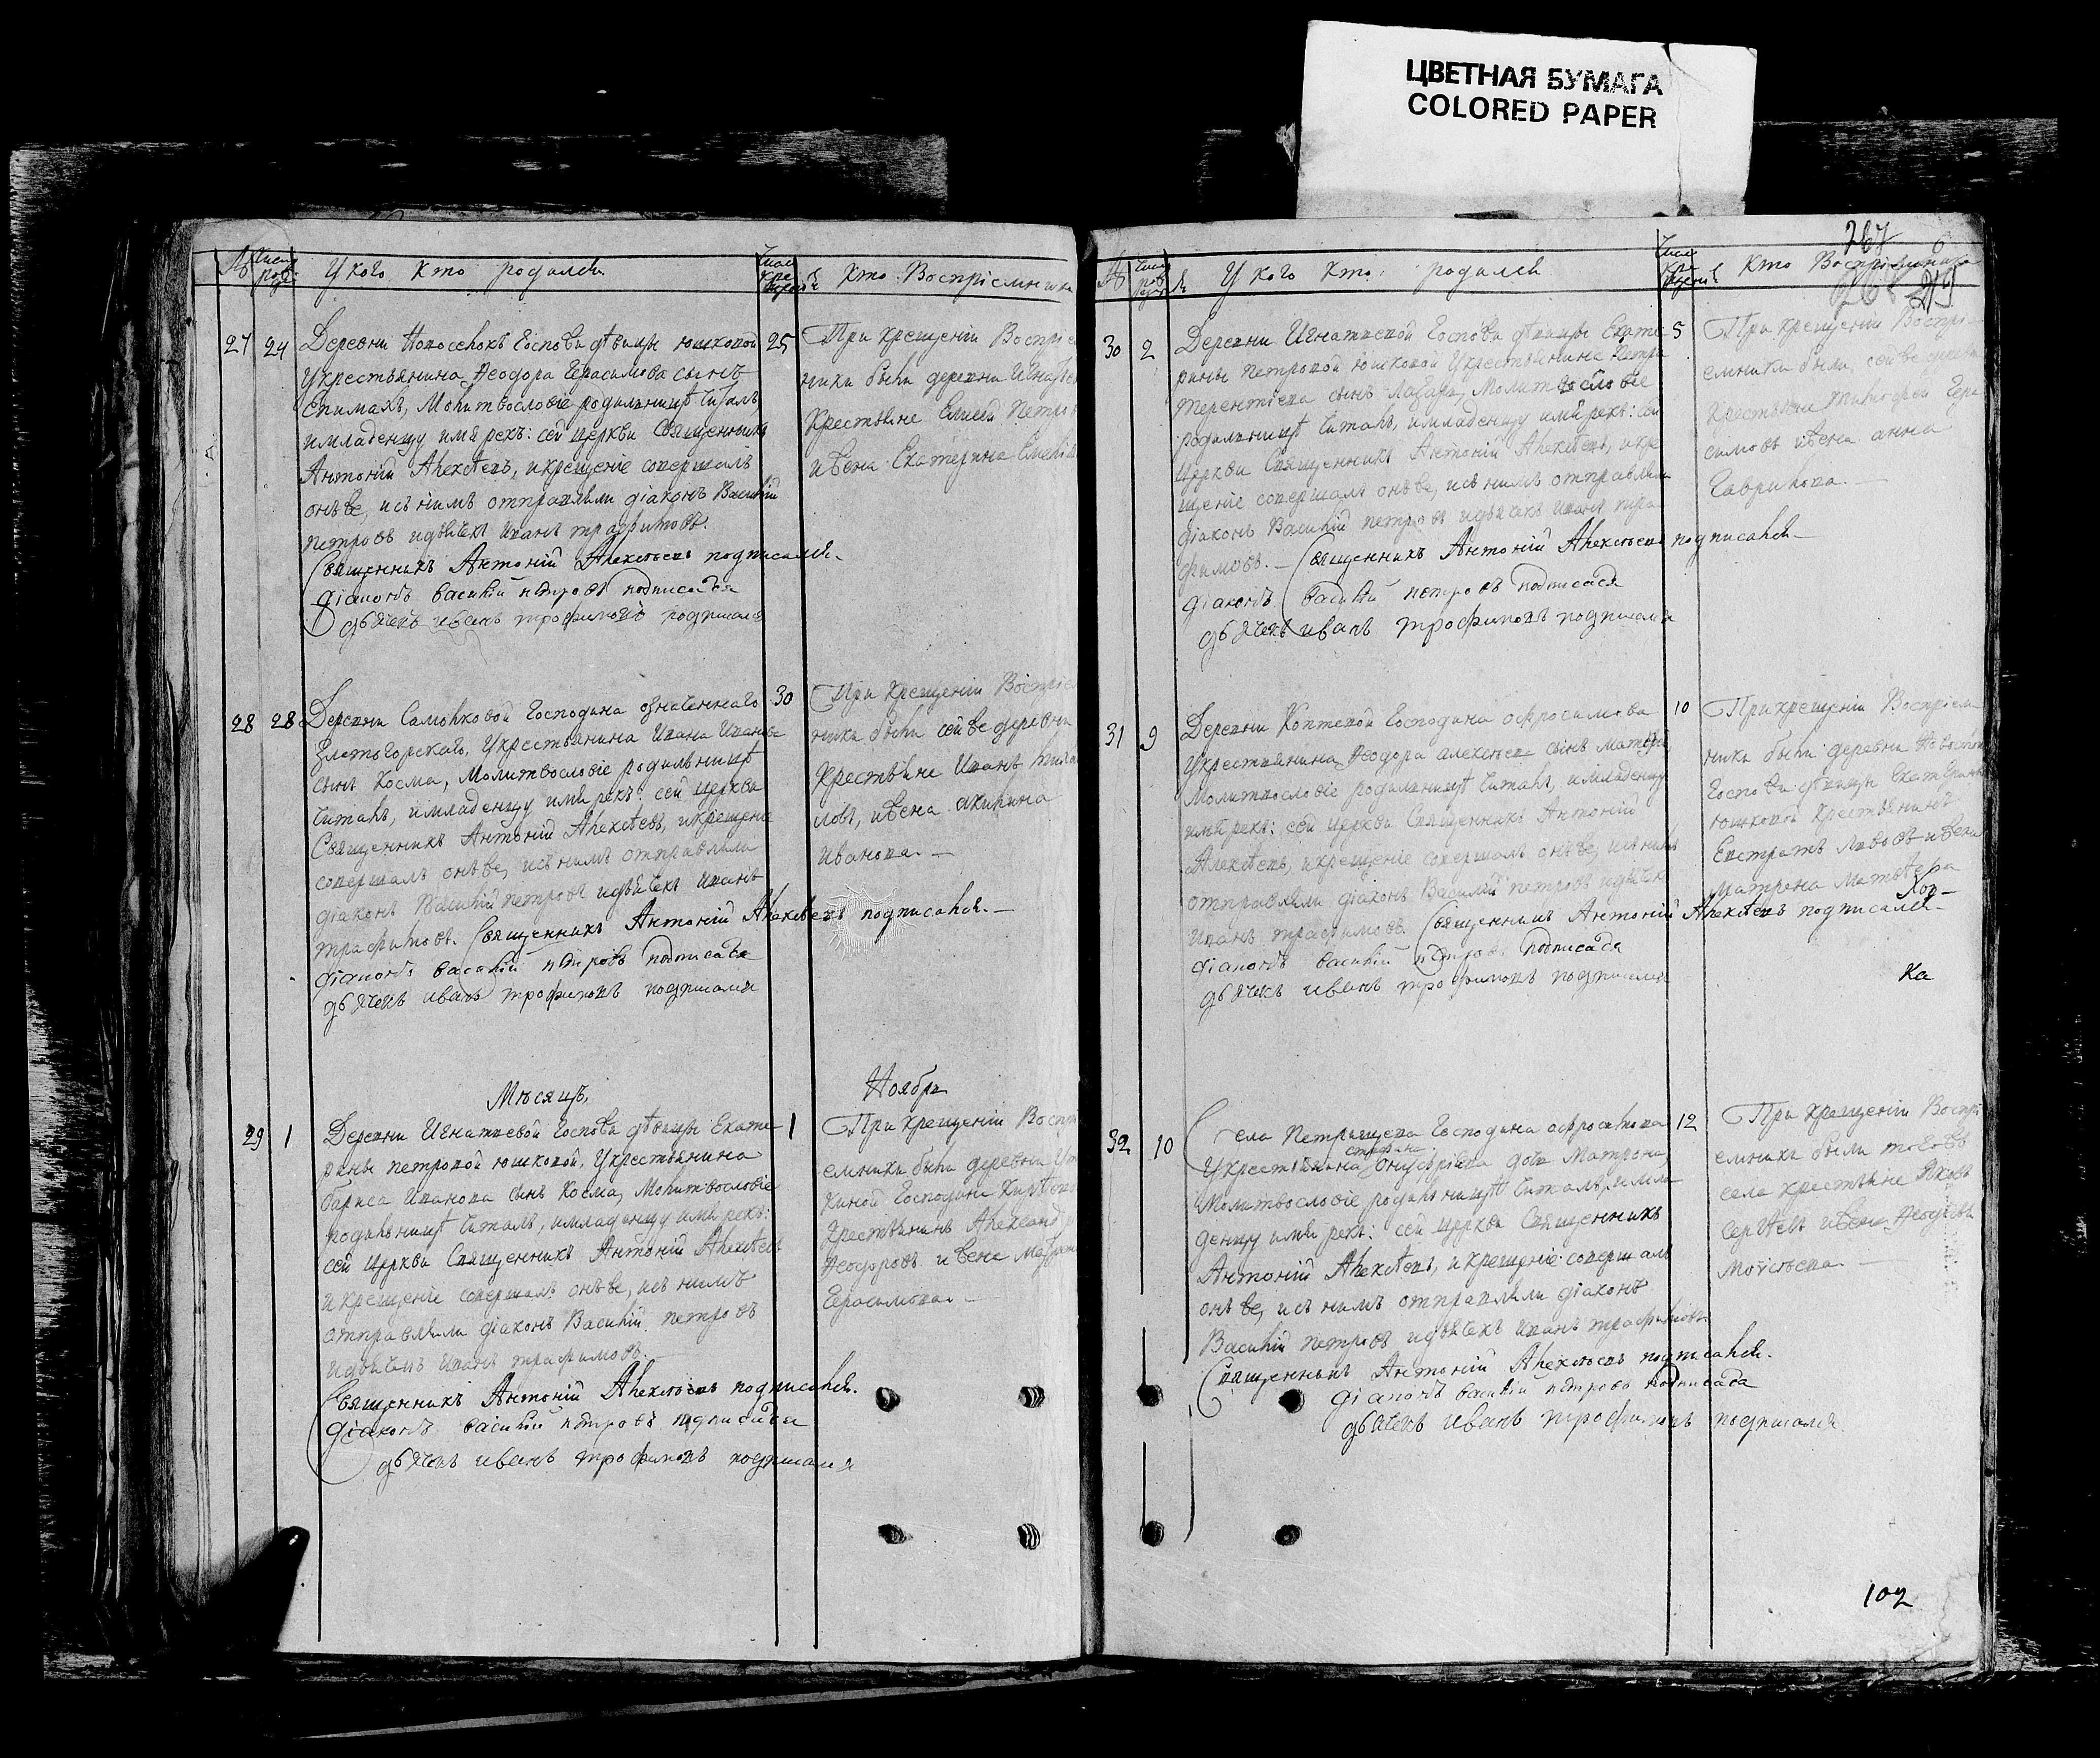 ЦВЕТНАЯ БУМАГА
COLORED PAPER
№ Числ рож: У кого кто родился Числ кре щенiй Кто Воспрiемники
27 24 Деревни Госпожи девицы Юшковой 25
Укрестьянина Феодора Герасимова сынъ
Епимахъ, Молитвословiе родильнице читалъ
имладенцу имя рекъ: сей церкви Священникъ
Антонiй Алексеевъ, икрещенiе совершалъ
онъ же, исъ нимъ отправляли дiаконъ Василiй
петровъ идьячекъ Иванъ трафимовъ.
Священникъ Антонiй Алексеевъ подписался.
дiаконъ василiй петровъ подписался
дьячекъ иванъ трофимовъ подписался
При крещенiи Воспрiе
ники были деревни
Крестьяне Петро
ижена Екатерина
28 28 Деревни Самойковой Господина означеннаго 30
Укрестьянина Ивана Иванова
сынъ Косма, Молитвословiе родильнице
читалъ, имладенцу имя рекъ: сей церкви
Священникъ Антонiй Алексеевъ, икрещенiе
совершалъ онъ же, исъ нимъ отправляли
дiаконъ Василiй петровъ идьячекъ Иванъ
трафимовъ. Священникъ Антонiй Алексеевъ подписался.
дiаконъ василiй петровъ подписался
дьячекъ иванъ трофимовъ подписался
При крещенiи Воспрiе
ники были сей же деревни
Крестьяне Иванъ
ижена акилина
Иванова.
Месяцъ, Ноябрь
29 1 Деревни Игнатьевой Госпожи девицы Екате 1
рины петровой юшковой, Укрестьянина
бариса Иванова сынъ Косма, Молитвословiе
родильнице читалъ, имладенцу имя рекъ:
сей церкви Священникъ Антонiй Алексеевъ
икрещенiе совершалъ онъ же, исъ нимъ
отправляли дiаконъ Василiй петровъ
идьячекъ Иванъ трафимовъ.
Священникъ Антонiй Алексеевъ подписался.
дiаконъ василiй петровъ подписался
дьячекъ иванъ трофимовъ подписался
При крещенiи Воспрi
емники были деревни
Господина
Крестьянинъ Александ
Феодоровъ и жена
Герасимова.
267
№ Числ рож У кого кто родился Числ кре щенi Кто Воспрiемники
30 2 Деревни Игнатьевой Госпожи девицы Екате 5
рины Петровой Юшковой Укрестьянина Петра
Терентiева сынъ Лазарь, Молитвословiе
родильнице читалъ, имладенцу имя рекъ: сей
Церкви Священникъ Антонiй Алексеевъ, икре
щенiе совершалъ онъ же, исъ нимъ отправляли
дiаконъ Василiй петровъ идьячекъ Иванъ тра
фимовъ. Священникъ Антонiй Алексеевъ подписался
дiаконъ василiй петровъ подписался
дьячекъ иванъ трофимовъ подписался
При крещенiи Воспрi
емники были, сей же деревни
Крестьяне Тимофей Гера
симовъ ижена анна
Гаврилова.
31 9 Деревни Коптевой Господина офросимова 10
Укрестьянина Феодора алексеева сынъ
Молитвословiе родильнице читалъ, имладенцу
имя рекъ: сей церкви Священникъ Антонiй
Алексеевъ, икрещенiе совершалъ онъ же, исъ нимъ
отправляли дiаконъ Василiй петровъ идьячекъ
Иванъ трафимовъ. Священникъ Антонiй Алексеевъ подписался
дiаконъ василiй петровъ подписался
дьячекъ иванъ трофимовъ подписался
При крещенiи Воспрiем
ники были деревни
Госпожи девицы Екатерины
юшковой Крестьянинъ
Евстратъ ижена
матрена
Ка
32 10 Села Петрищева Господина офросимова 12
Укрестьянина дочь Матрона,
Молитвословiе родильнице читалъ, имла
денцу имя рекъ: сей церкви Священникъ
Антонiй Алексеевъ, и крещенiе совершалъ
онъ же, исъ нимъ отправляли дiаконъ
Василiй петровъ идьячекъ Иванъ трафимовъ
Священникъ Антонiй Алексеевъ подписался.
дiаконъ василiй петровъ подписался
дьячекъ иванъ трофимовъ подписался
При крещенiи Воспрi
емники были тогожъ
села крестьяне Яковъ
Сергеевъ ижена
Моисеева.
102